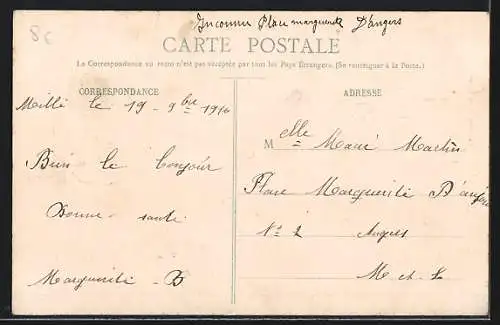 8€
Inconnu Place marguerite D'angers
CARTE POSTALE
La Correspondance au recto n'est pas acceptée par tous les Pays Étrangers. (Se renseigner à la Poste.)
CORRESPONDANCE
ADRESSE
Milli le 19 - 9bre 1910
Bien le bonjour
Bonne santé
Marguerite B
Melle Marie Martin
Place Marguerite D'anjou
No 2 Angers
M et L